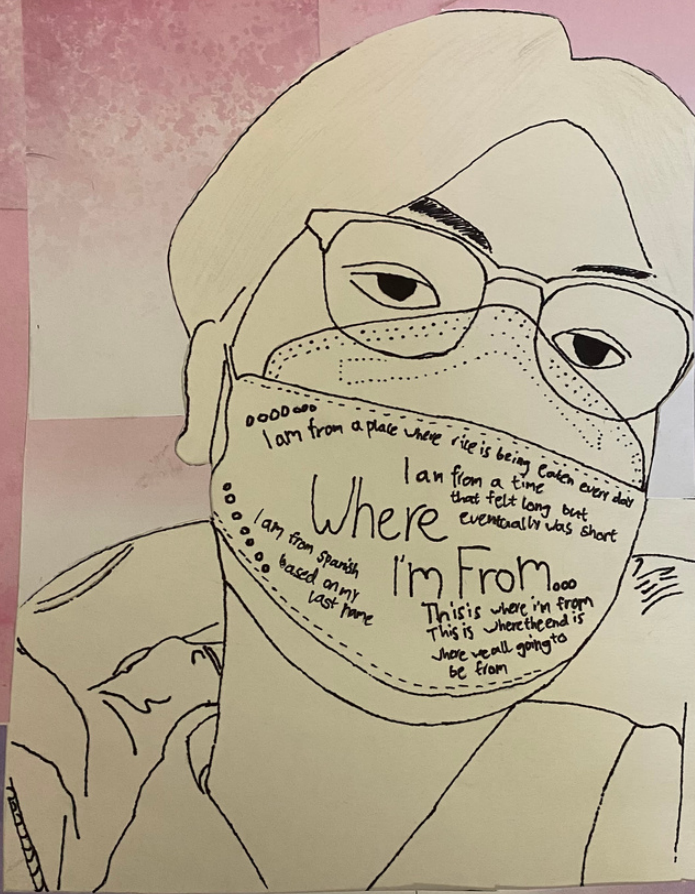 I am from a place where rice is being eaten every day
I am from a time
that felt long but
eventually was short
Where
I'm From...
I am from spanish
based on my
last name
This is where i'm from
This is where the end is
where we all going to
be from